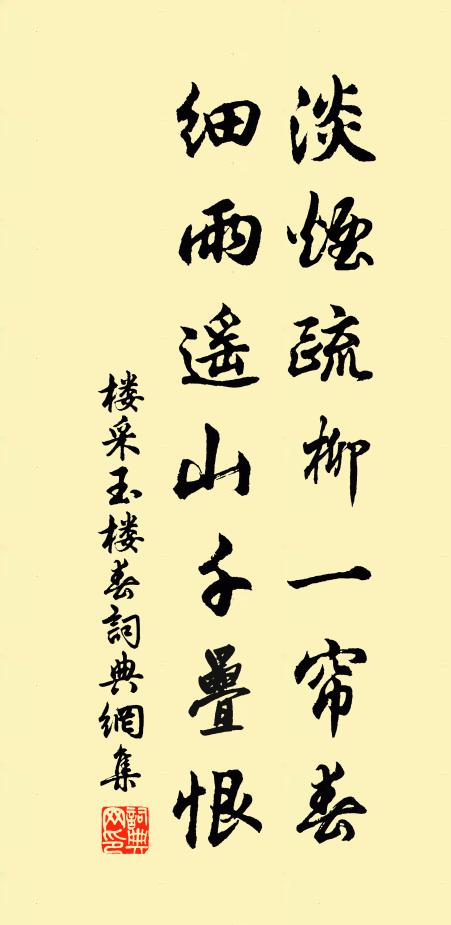 淡煙疏柳一帘春
細雨遥山千疊恨
楼采玉楼春詞典網集
詞典网印